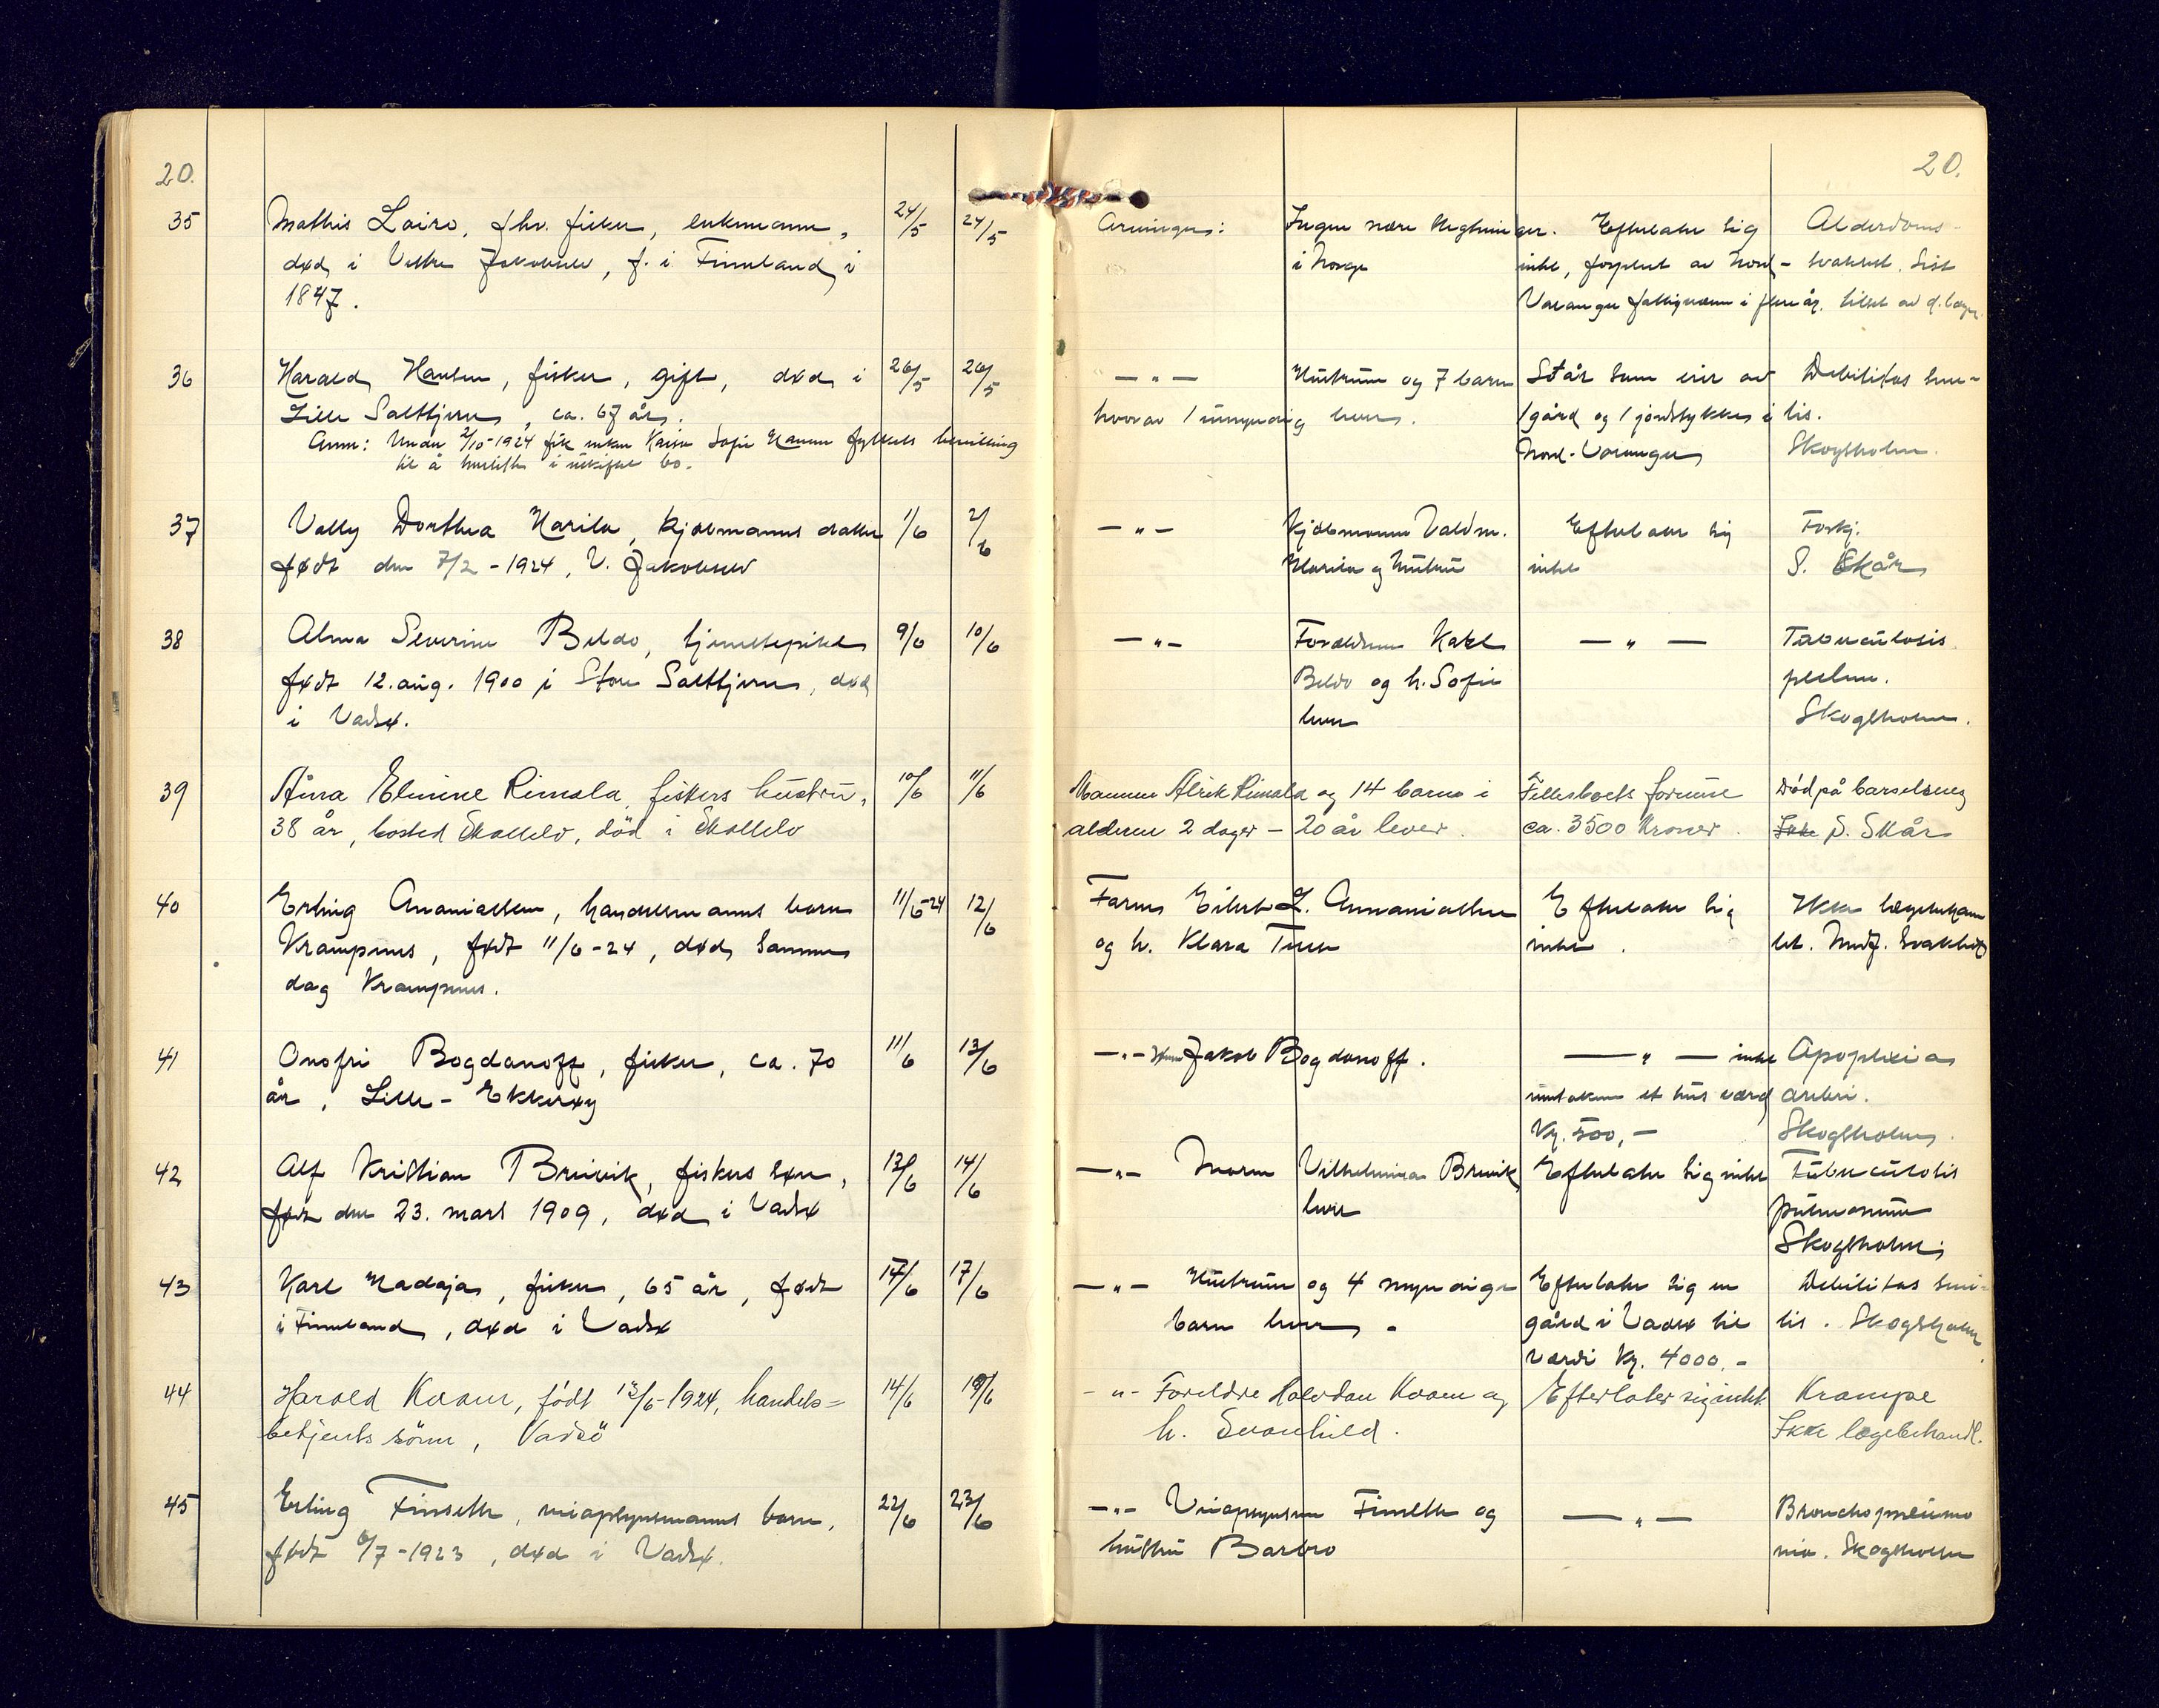 20.
20.
35 Mathis Lairo, fhv. fisker, enkemann, 24/5 24/5
død i Vestre Jakobselv, f. i Finnland i
1847.
Arvinger: Ingen nære slegtninger. Efterlater sig Alderdoms-
i Norge inlet, forpleiet av Nord- svakhet. Sist
Varanger fattigvesen i flere år. tilset av d.læge
36 Harald Hansen, fisker, gift, død i 26/5 26/5
Lille Salttjern, ca. 67 år.
Anm: Under 2/10-1924 fik enken Kaisa Sofie Hansen fylkets bevilling
til å hensitte i uskiftet bo.
— " — Hustruen og 7 barn Står som eier av Debilitas seni-
hvorav 1 umyndig lever. 1 gård og 1 jordstykke i lis.
Nord-Varanger Skogsholm.
37 Vally Dorthea Harila, kjøbmanns datter 1/6 2/6
født den 7/2-1924, V. Jakobselv
— " — Kjøbmann Valdm. Efterlater sig Forkj.
Harila og hustru intet S. Skår
38 Alma Severine Beldo, tjenestepike 9/6 10/6
født 12. aug. 1900 i Store Salttjern, død
i Vadsø.
— " — Forældrene Karl — " — Tuberculosis
Beldo og h. Sofie pulm.
lever Skogsholm.
39 Anna Elmine Rimala, fiskers hustru, 10/6 11/6
38 år, bosted Skallelv, död i Skallelv
Mannen Alrik Rimala og 14 barn i Fellesboets formue Död på barselseng
alderen 2 dager - 20 år lever. ca. 3500 kroner. S. Skår
40 Erling Ananiassen, handelsmanns barn 11/6-24 12/6
Krampenes, født 11/6-24, død samme
dag Krampenes.
Faren Eilert L. Annaniassen Efterlater sig Ikke lægebehand
og h. Klara Tine intet. let. Medf. svakhet
41 Onofri Bogdanoff, fisker, ca. 70 11/6 13/6
år, Lille-Ekkerøy
— " — Jakob Bogdanoff. — " — intet Apoplexia
undtaken et hus værd cerebri.
Kr. 500,— Skogsholm.
42 Alf Kristian Breivik, fiskers søn, 13/6 14/6
født den 23. mars 1909, død i Vadsø
— " — Moren Vilhelmina Breivik Efterlater sig intet Tuberculosis
lever pulmonum
Skogsholm
43 Karl Madaja, fisker, 65 år, født 14/6 17/6
i Finnland, død i Vadsø
— " — Hustruen og 4 myndige Efterlater sig en Debilitas seni-
barn lever. gård i Vadsø til lis. Skogsholm
værdi Kr. 4000.-
44 Harald Kvam, født 13/6-1924, handels= 14/6 19/6
betjents sönn, Vadsö
- " - Foreldre Halvdan Kvam og Efterlater sig intet Krampe
h. Svanhild. Ikke lægebehandl.
45 Erling Finseth, visergutsmanns barn, 22/6 23/6
født 6/7-1923, død i Vadsø.
— " — Finseth og — " — Bronchopneumo
hustru Barbro nia. Skogsholm